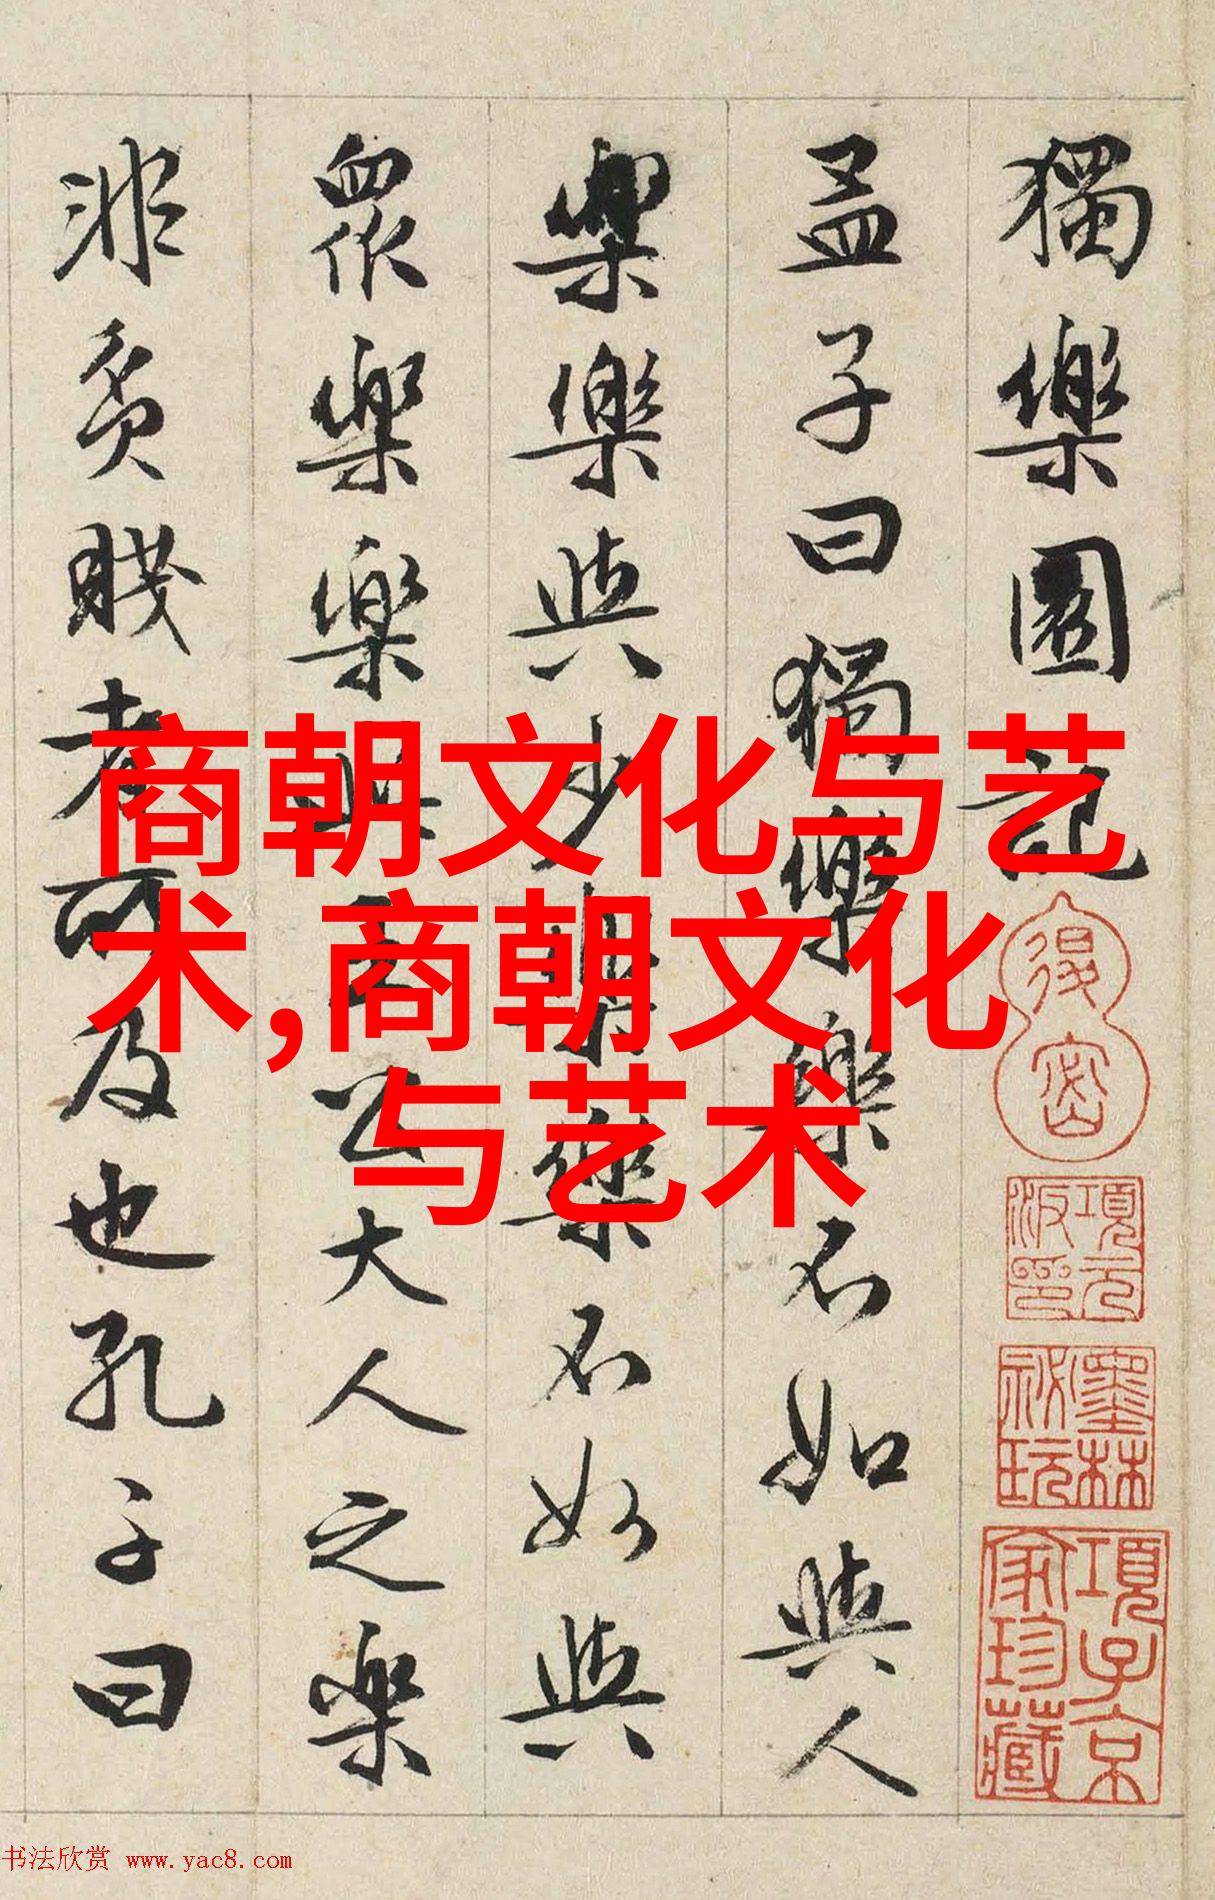 獨樂園記
孟子曰獨樂樂不如與人
樂樂與少樂樂不如與
眾樂樂此王公大人之樂
非貧賤者所及也孔子曰
商朝文化与艺
术,商朝文化
与艺术
退密
項元汴印
墨林秘玩
項子京家珍藏
书法欣赏 www.yac8.com